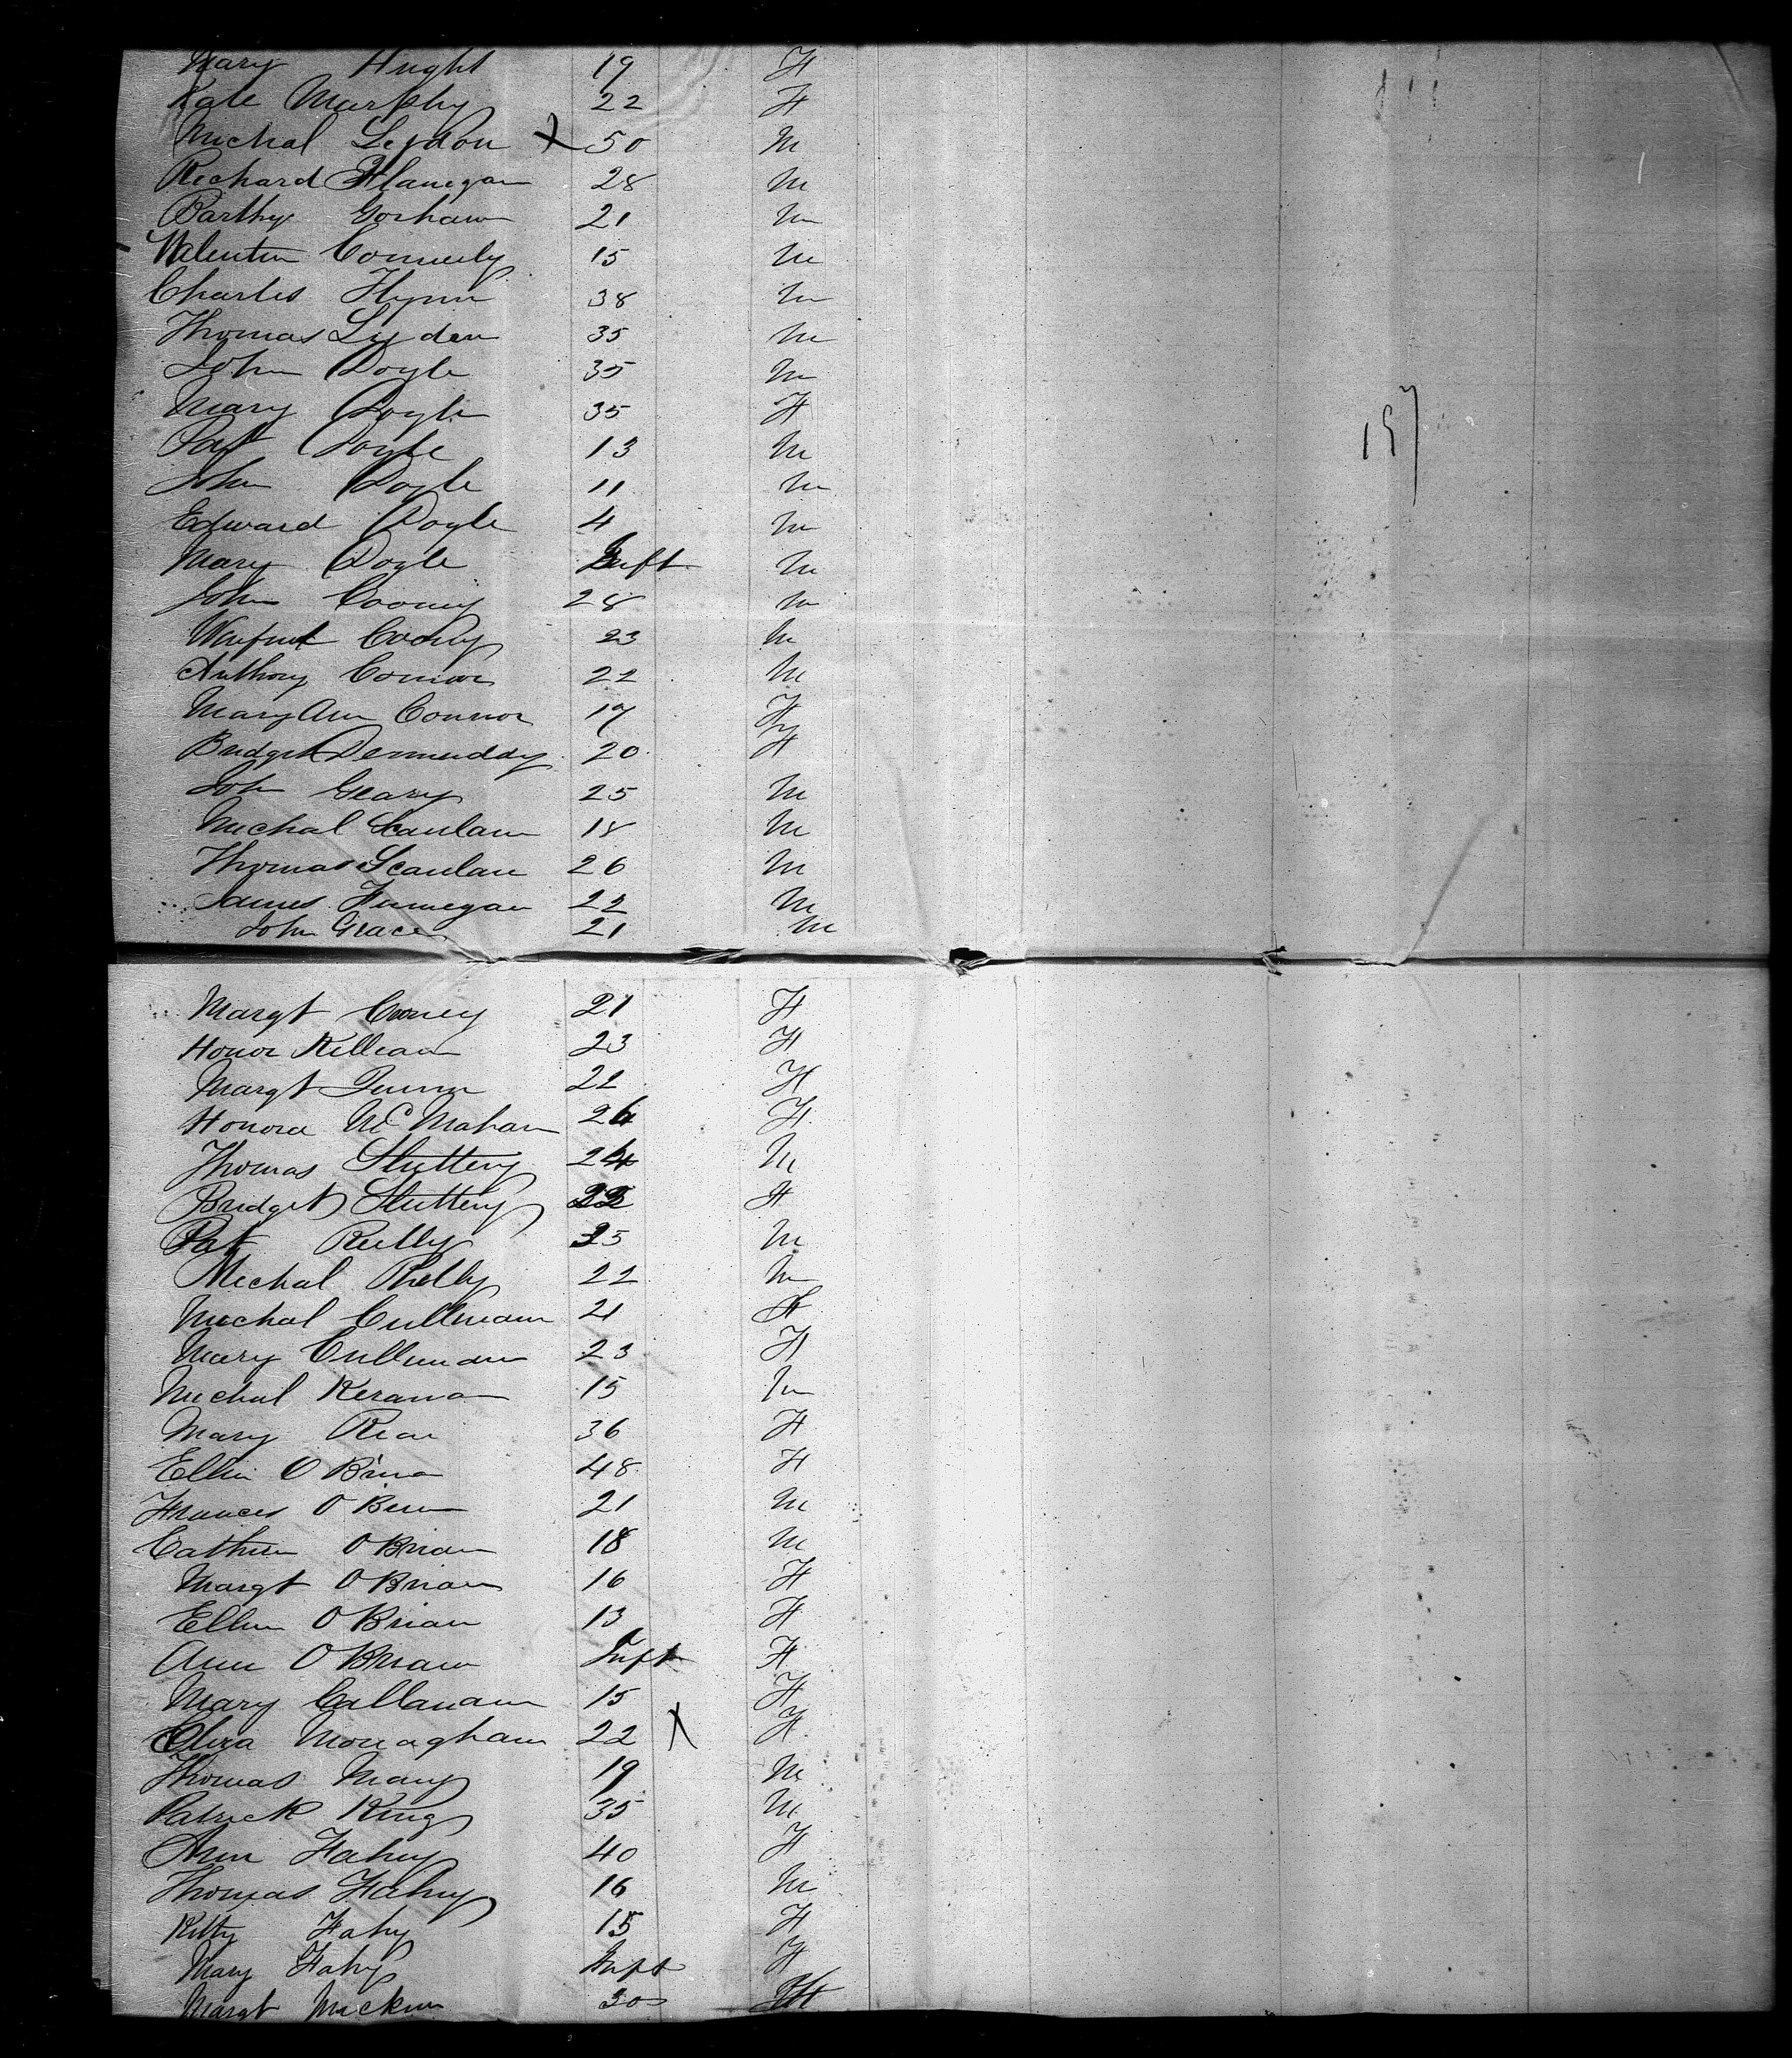 Mary Hught 19 F
Kate Murphy 22 F
Michal Leydon X 50 M
Richard Flanegan 28 M
Barthy Gorham 21 M
Valentin Conneely 15 M
Charles Flynn 38 M
Thomas Lyden 35 M
John Doyle 35 M
Mary Doyle 35 F
197
Pat Doyle 13 M
John Doyle 11 M
Edward Doyle 4 M
Mary Doyle Inft M
John Cooney 28 M
Winfred Cooney 23 M
Anthony Connor 22 M
Mary Ann Connor 17 F
Bridget Dermuddy 20 F
John Geary 25 M
Michal Scanlan 18 M
Thomas Scanlan 26 M
James Finnegan 22 M
John Grace 21 M
Margt Cooney 21 F
Honor Killean 23 F
Margt 22 F
Honora McMahan F
Thomas Sluttery 24 M
Bridget Sluttery F
Pat Reilly 35 M
Michal Rielly 22 M
Michal Cullinan 21 F
Mary Cullinan 23 F
Michal 15 M
Mary 36 F
Ellin O Brien 48 F
Frances O Brien 21 M
Cathrin O Brian 18 M
Margt O Brian 16 F
Ellen O Brian 13 F
Ann O Brian Inft F
Mary Callanan 15 F
Eliza Monaghan 22 X F
Thomas Many 19 M
Patrick King 35 M
Ann Fahy 40 F
Thomas Fahy 16 M
Kitty Fahy 15 F
Mary Fahy Inft F
Margt 30 F